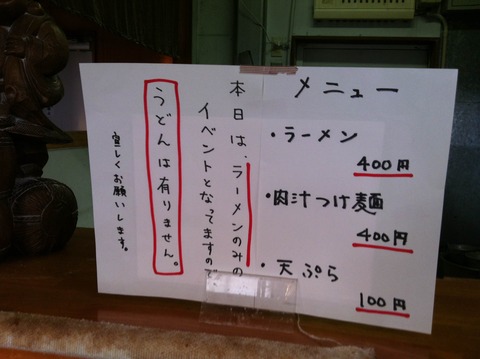 メニュー
・ラーメン
400円
・肉汁つけ麺
400円
・天ぷら
100円
本日は、ラーメンのみの
イベントとなってますので
うどんは有りません。
宜しくお願いします。